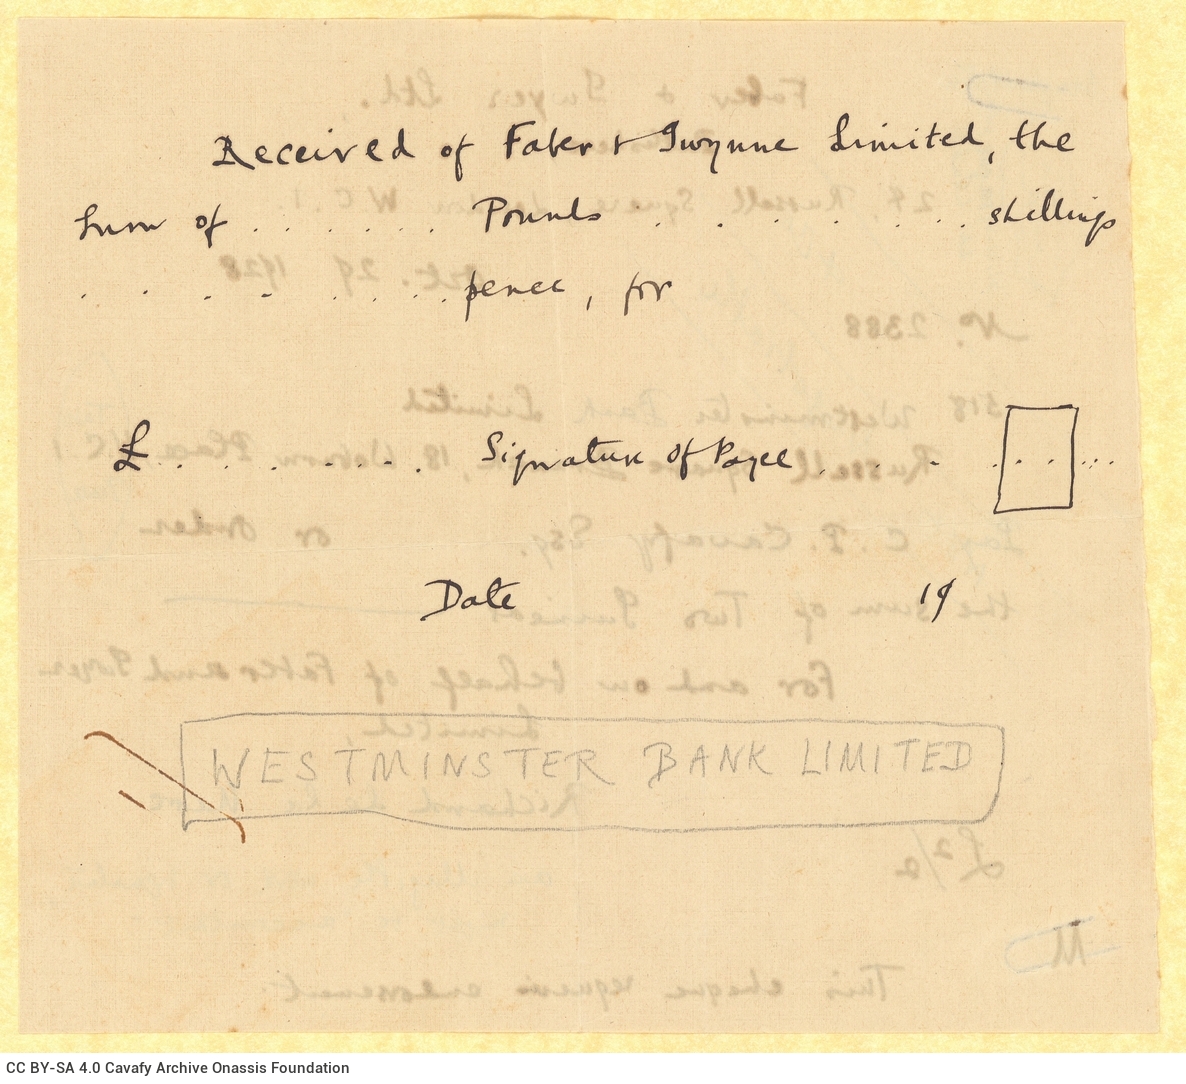 Received of Faber & Gwynne Limited, the
Sum of . . . . . . . Pounds . . . . . . . shillings
. . . . . . . . pence, for
£ . . . . . . . . Signature of Payee . . . . . . . . .
Date 19
WESTMINSTER BANK LIMITED
CC BY-SA 4.0 Cavafy Archive Onassis Foundation